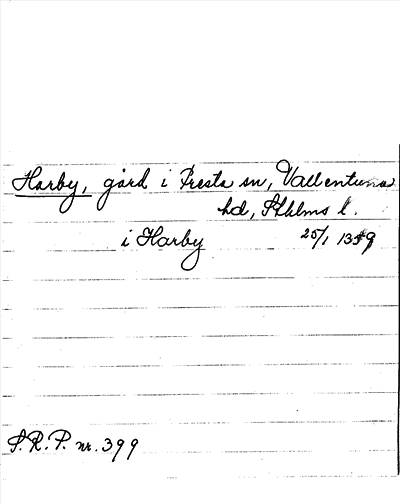 Harby, gård i Fresta sn, Vallentuna
hd, Sthlms l.
i Harby 25/1 1359
S.R.P. nr. 399